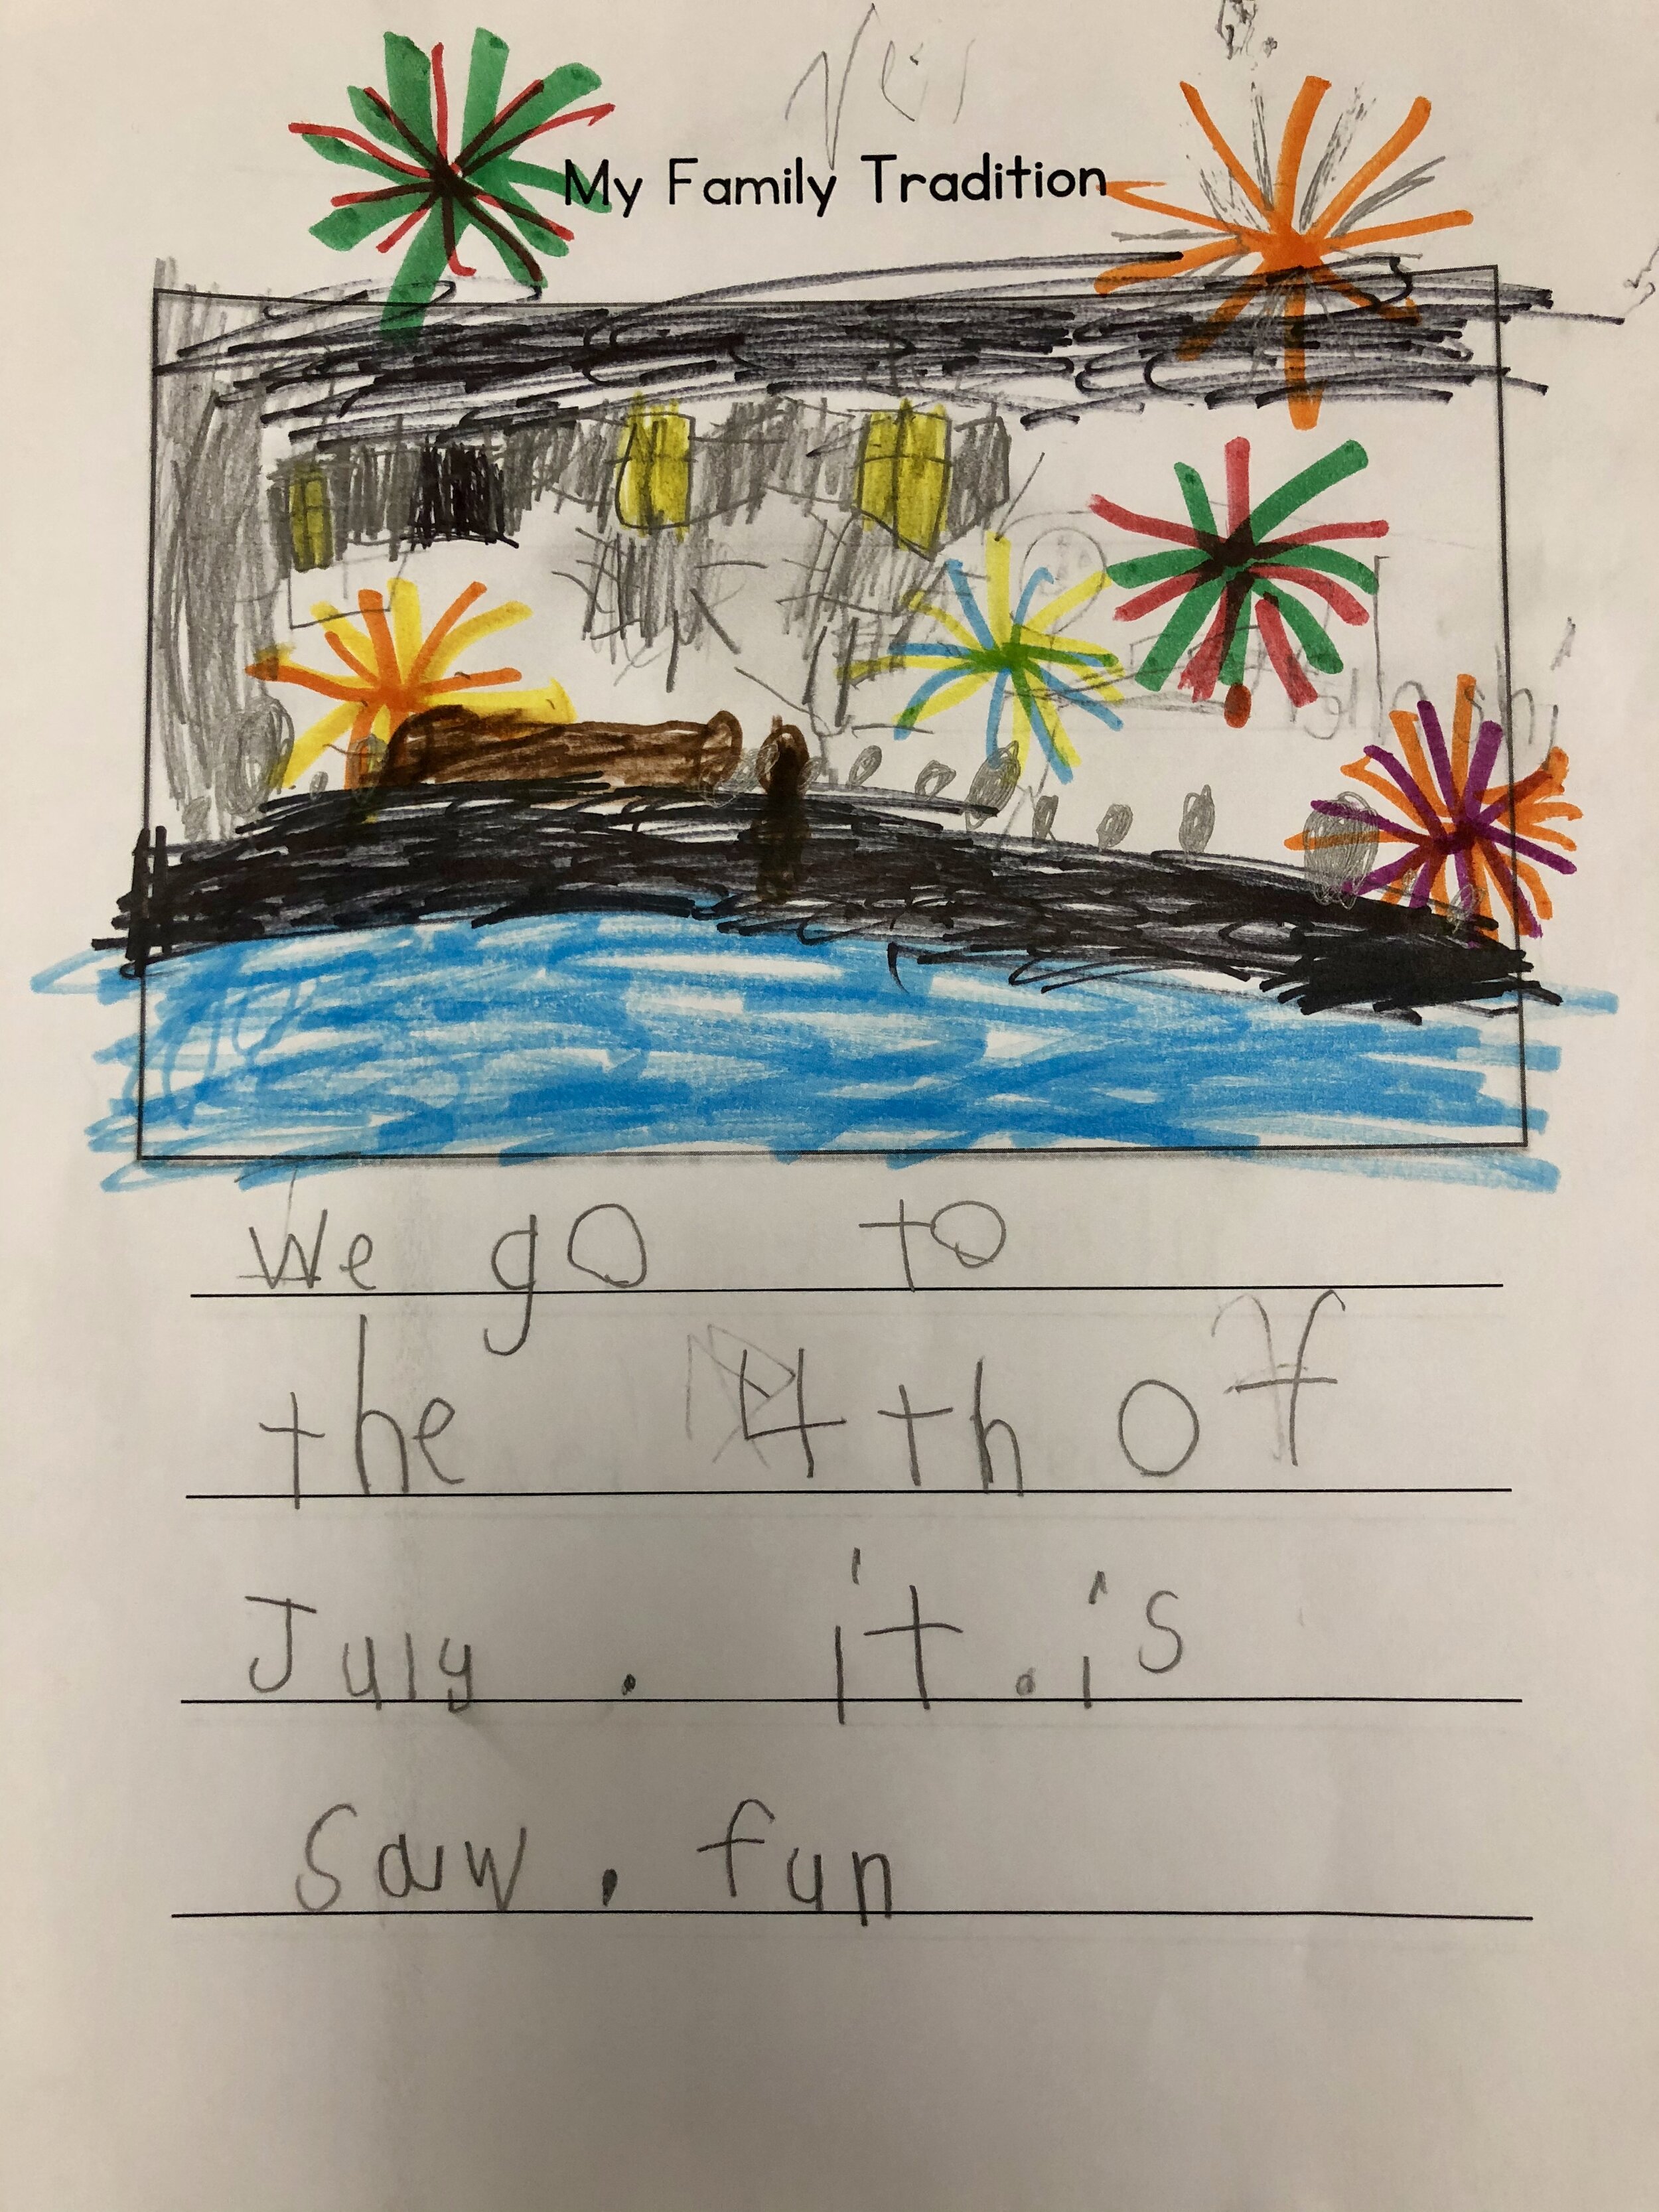 My Family Tradition
We go to
the 4th of
July . it . is
Saw . fun